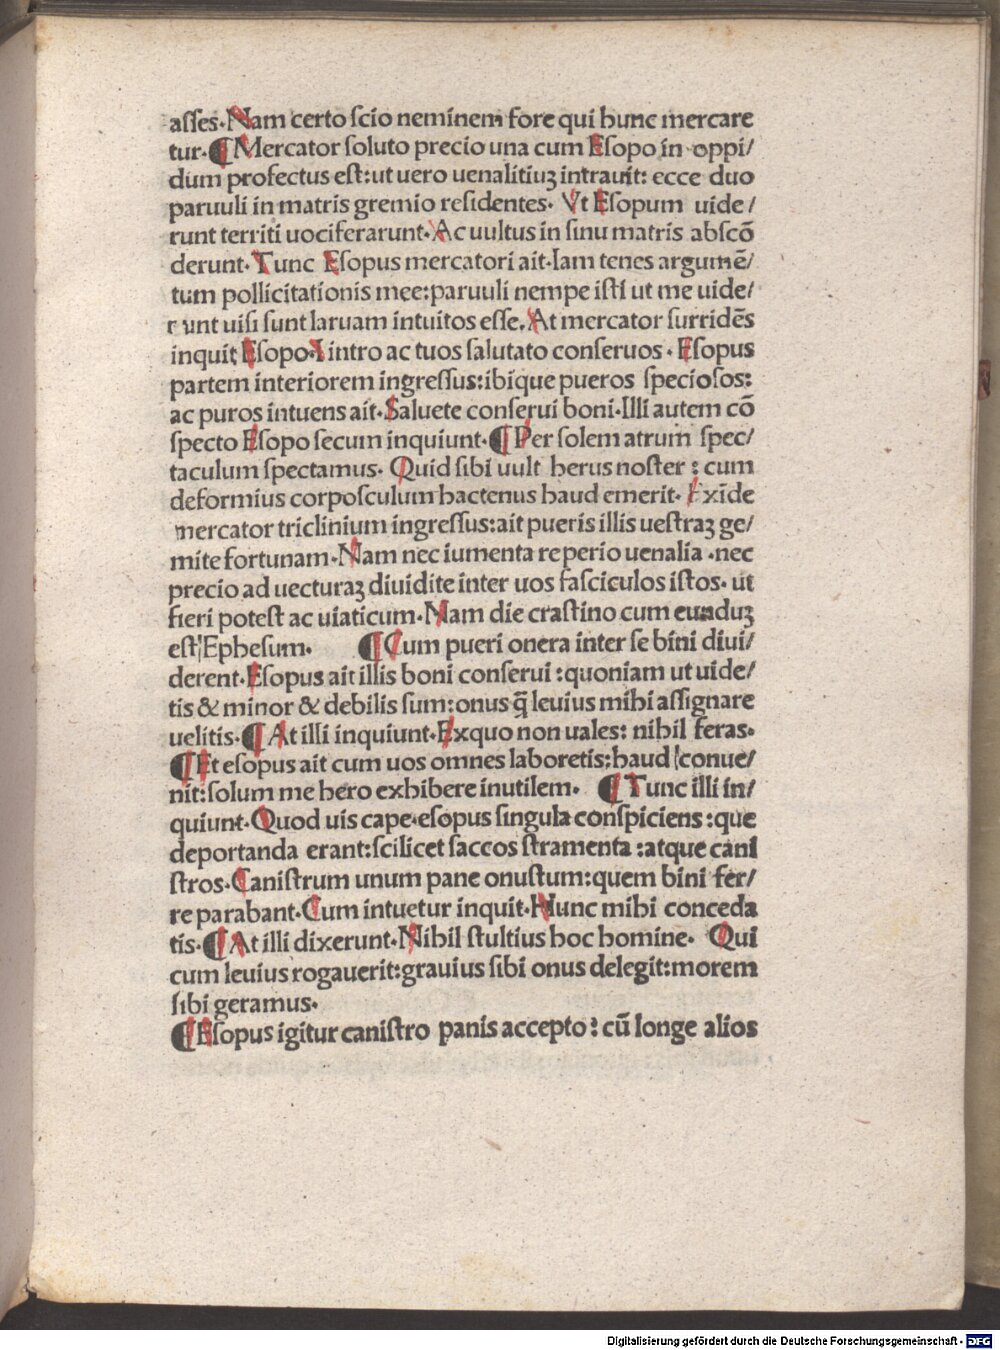 asſes·Nam certo ſcio neminem fore qui hunc mercare
tur·¶Mercator ſoluto precio una cum Eſopo in oppi/
dum profectus eſt:ut uero uenalitiuꝫ intrauit: ecce duo
paruuli in matris gremio reſidentes· Vt Eſopum uide/
runt territi uociferarunt·Ac uultus in ſinu matris abſcō
derunt·Tunc Eſopus mercatori ait·Iam tenes argumē/
tum pollicitationis mee:paruuli nempe iſti ut me uide/
runt uiſi ſunt laruam intuitos eſſe.At mercator ſurridēs
inquit Eſopo·I intro ac tuos ſalutato conſeruos· Eſopus
partem interiorem ingreſſus:ibique pueros ſpecioſos:
ac puros intuens ait·Saluete conſerui boni·Illi autem cō
ſpecto Eſopo ſecum inquiunt·¶Per ſolem atrum ſpec/
taculum ſpectamus· Quid ſibi uult herus noſter : cum
deformius corpoſculum hactenus haud emerit· Exīde
mercator triclinium ingreſſus:ait pueris illis ueſtraꝫ ge/
mite fortunam·Nam nec iumenta reperio uenalia ·nec
precio ad uecturaꝫ diuidite inter uos faſciculos iſtos· ut
fieri poteſt ac uiaticum·Nam die craſtino cum eunduꝫ
eſt Epheſum· ¶Cum pueri onera inter ſe bini diui/
derent·Eſopus ait illis boni conſerui :quoniam ut uide/
tis & minor & debilis ſum:onus q̄ leuius mihi aſſignare
uelitis·¶At illi inquiunt·Exquo non uales: nihil feras·
¶Et eſopus ait cum uos omnes laboretis:haud conue/
nit:ſolum me hero exhibere inutilem· ¶Tunc illi in/
quiunt·Quod uis cape·eſopus ſingula conſpiciens :que
deportanda erant:ſcilicet ſaccos ſtramenta :atque cani
ſtros·Caniſtrum unum pane onuſtum:quem bini fer/
re parabant·Cum intuetur inquit·Hunc mihi conceda
tis·¶At illi dixerunt·Nihil ſtultius hoc homine· Qui
cum leuius rogauerit:grauius ſibi onus delegit:morem
ſibi geramus·
¶Eſopus igitur caniſtro panis accepto : cū longe alios
Digitalisierung gefördert durch die Deutsche Forschungsgemeinschaft - DFG